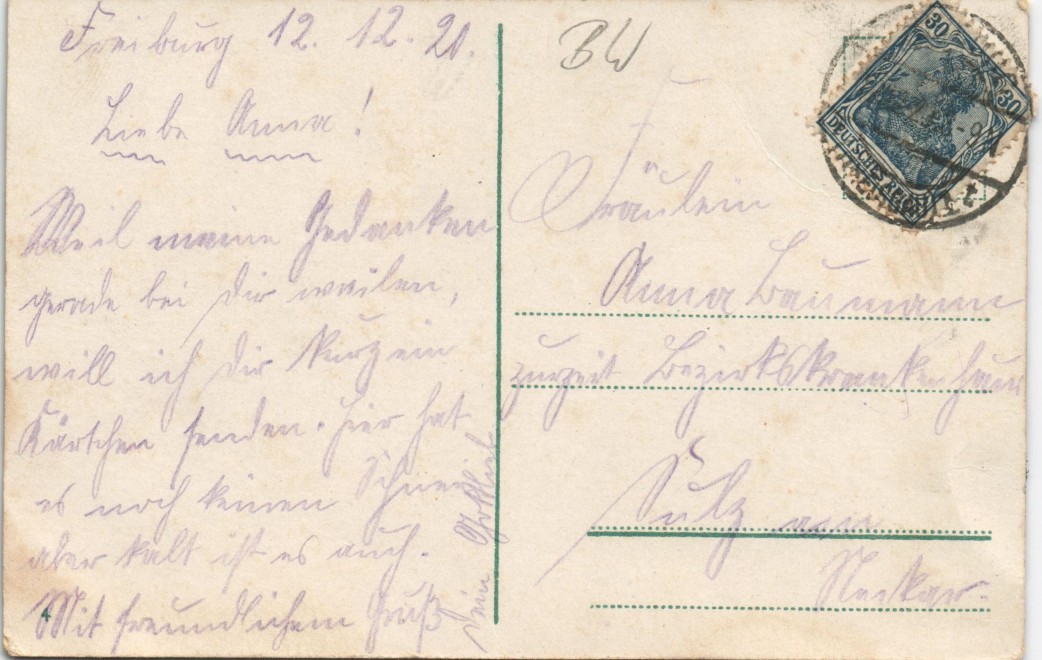 Freiburg 12. 12. 20.
Liebe Anna!
Weil meine Gedanken
gerade bei Dir weilen,
will ich Dir kurz ein
Kärtchen senden. Hier hat
es noch keinen Schnee
aber kalt ist es auch.
Mit freundlichem Gruß
Dein Gottlieb
4
BW
30
30
DEUTSCHES REICH
Fräulein
Anna Baumann
zurzeit Bezirkskrankenhaus
Sulz am
Neckar.